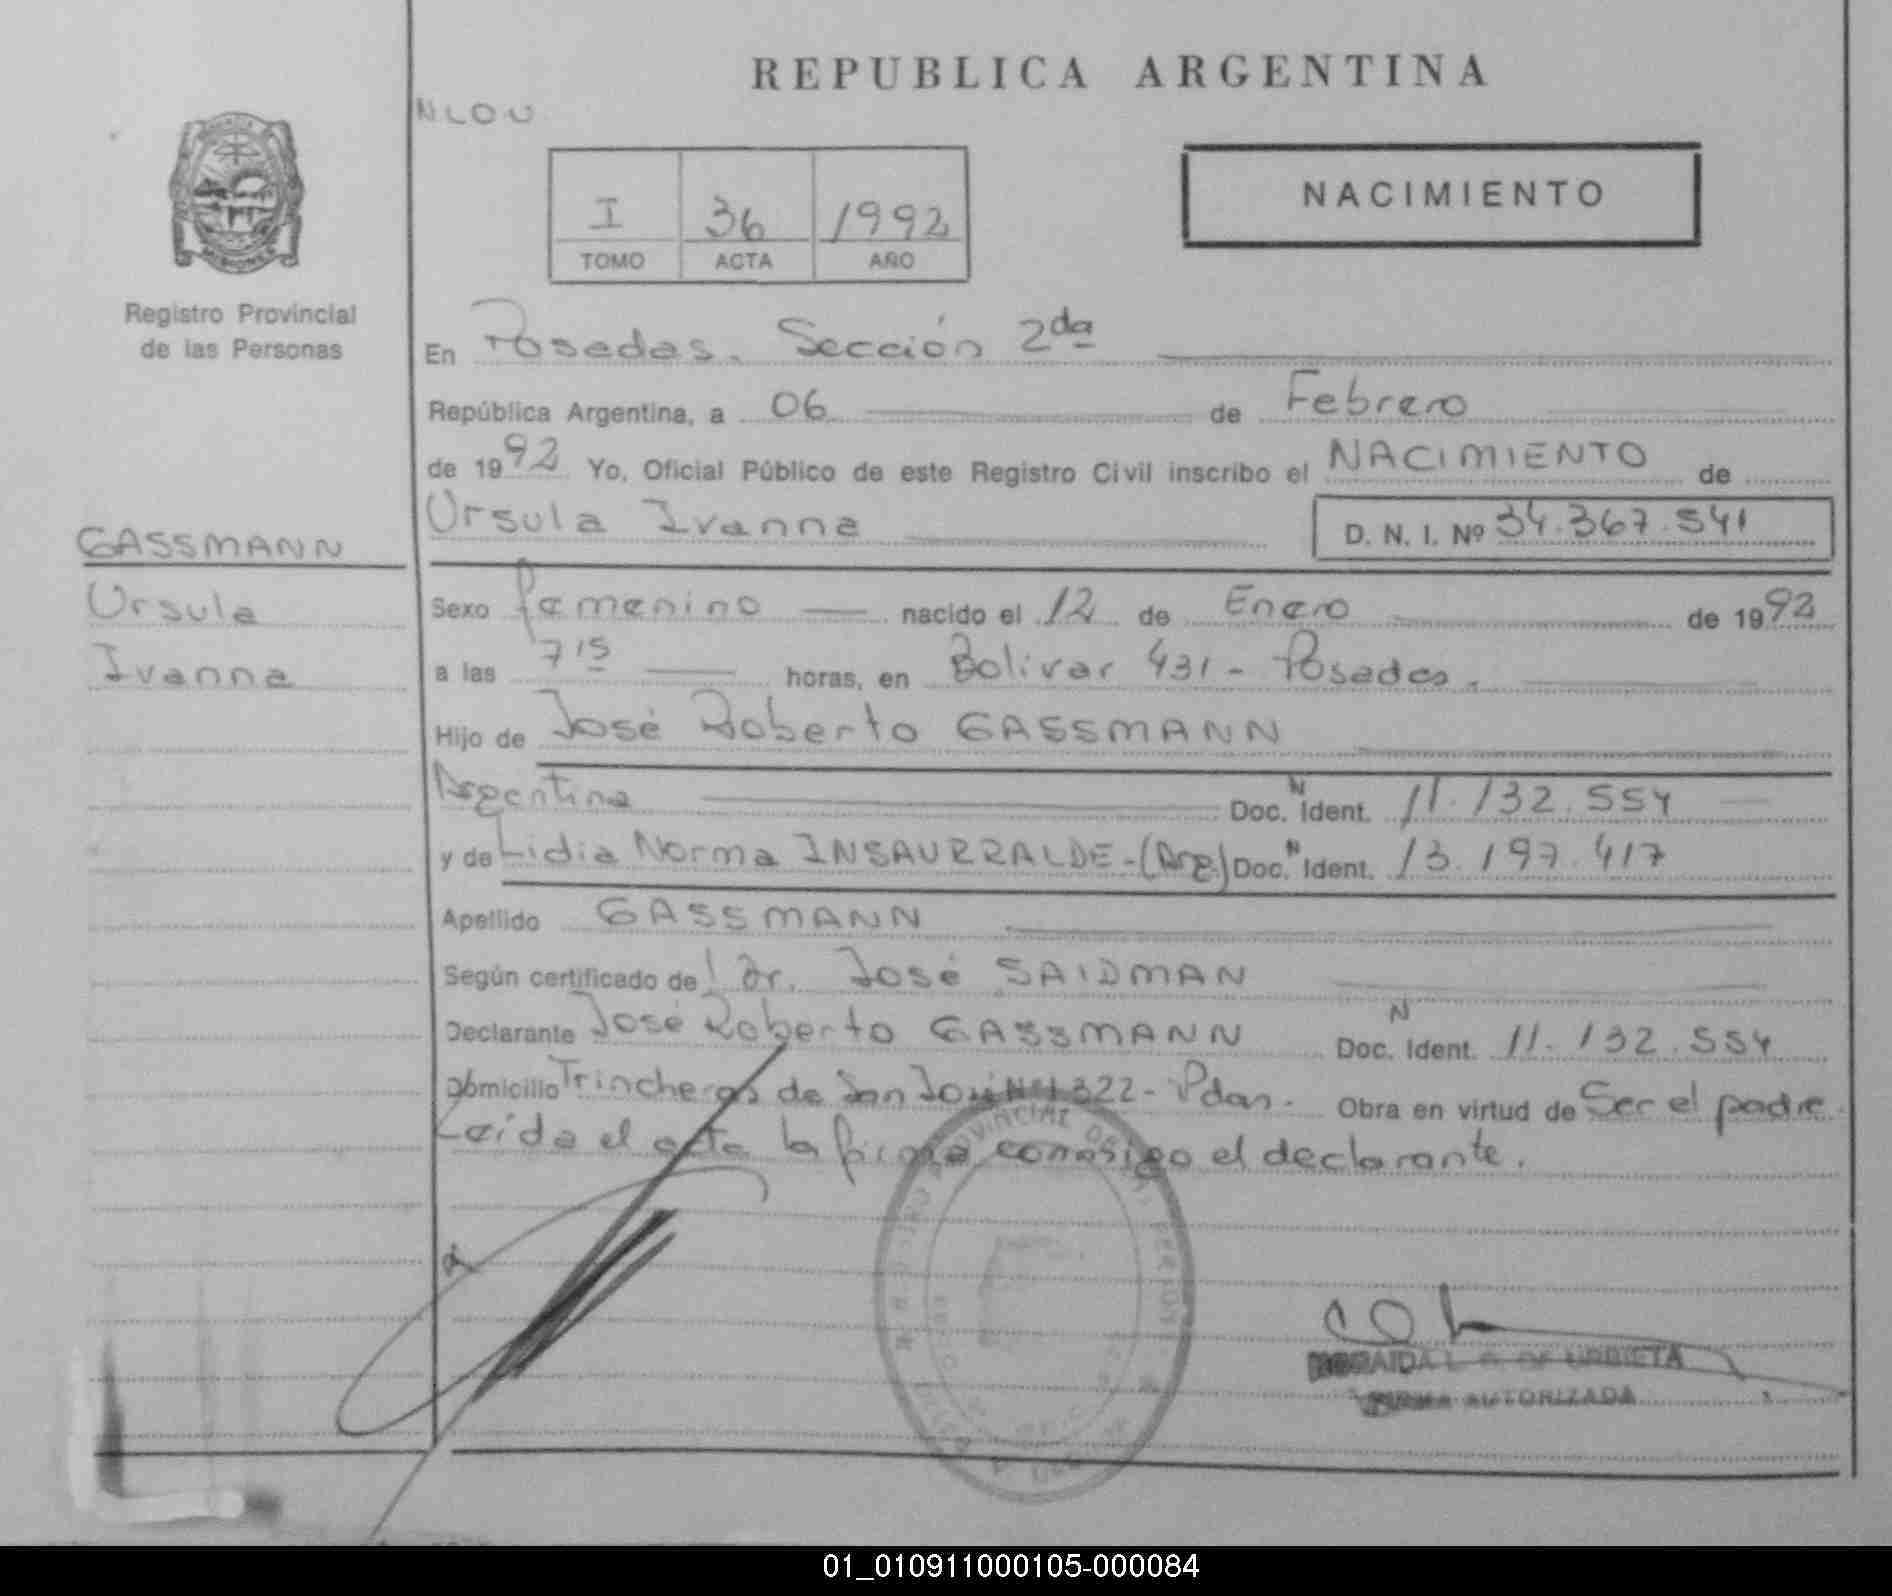 REPUBLICA ARGENTINA
NLOU
MISIONES
I 36 1992
TOMO ACTA AÑO
NACIMIENTO
Registro Provincial
de las Personas
En Posadas. Sección 2da
República Argentina, a 06 de Febrero
de 1992 Yo, Oficial Público de este Registro Civil inscribo el NACIMIENTO de
Ursula Ivanna D. N. I. Nº 34.367.541
GASSMANN
Ursula
Ivanna
Sexo femenino nacido el 12 de Enero de 1992
a las 7 15 horas, en Bolivar 431 - Posadas.
Hijo de José Roberto GASSMANN
Argentina Doc. N Ident. 11.132.554
y de Lidia Norma INSAURRALDE - (Arg.) Doc. N Ident. 13.197.417
Apellido GASSMANN
Según certificado de Dr. José SAIDMAN
Declarante José Roberto GASSMANN Doc. N Ident. 11.132.554
Domicilio Trincheras de San José Nº 1322 - Pdas. Obra en virtud de Ser el padre.
Leída el acta la firma conmigo el declarante.
DE URBIETA
FIRMA AUTORIZADA
01_010911000105-000084